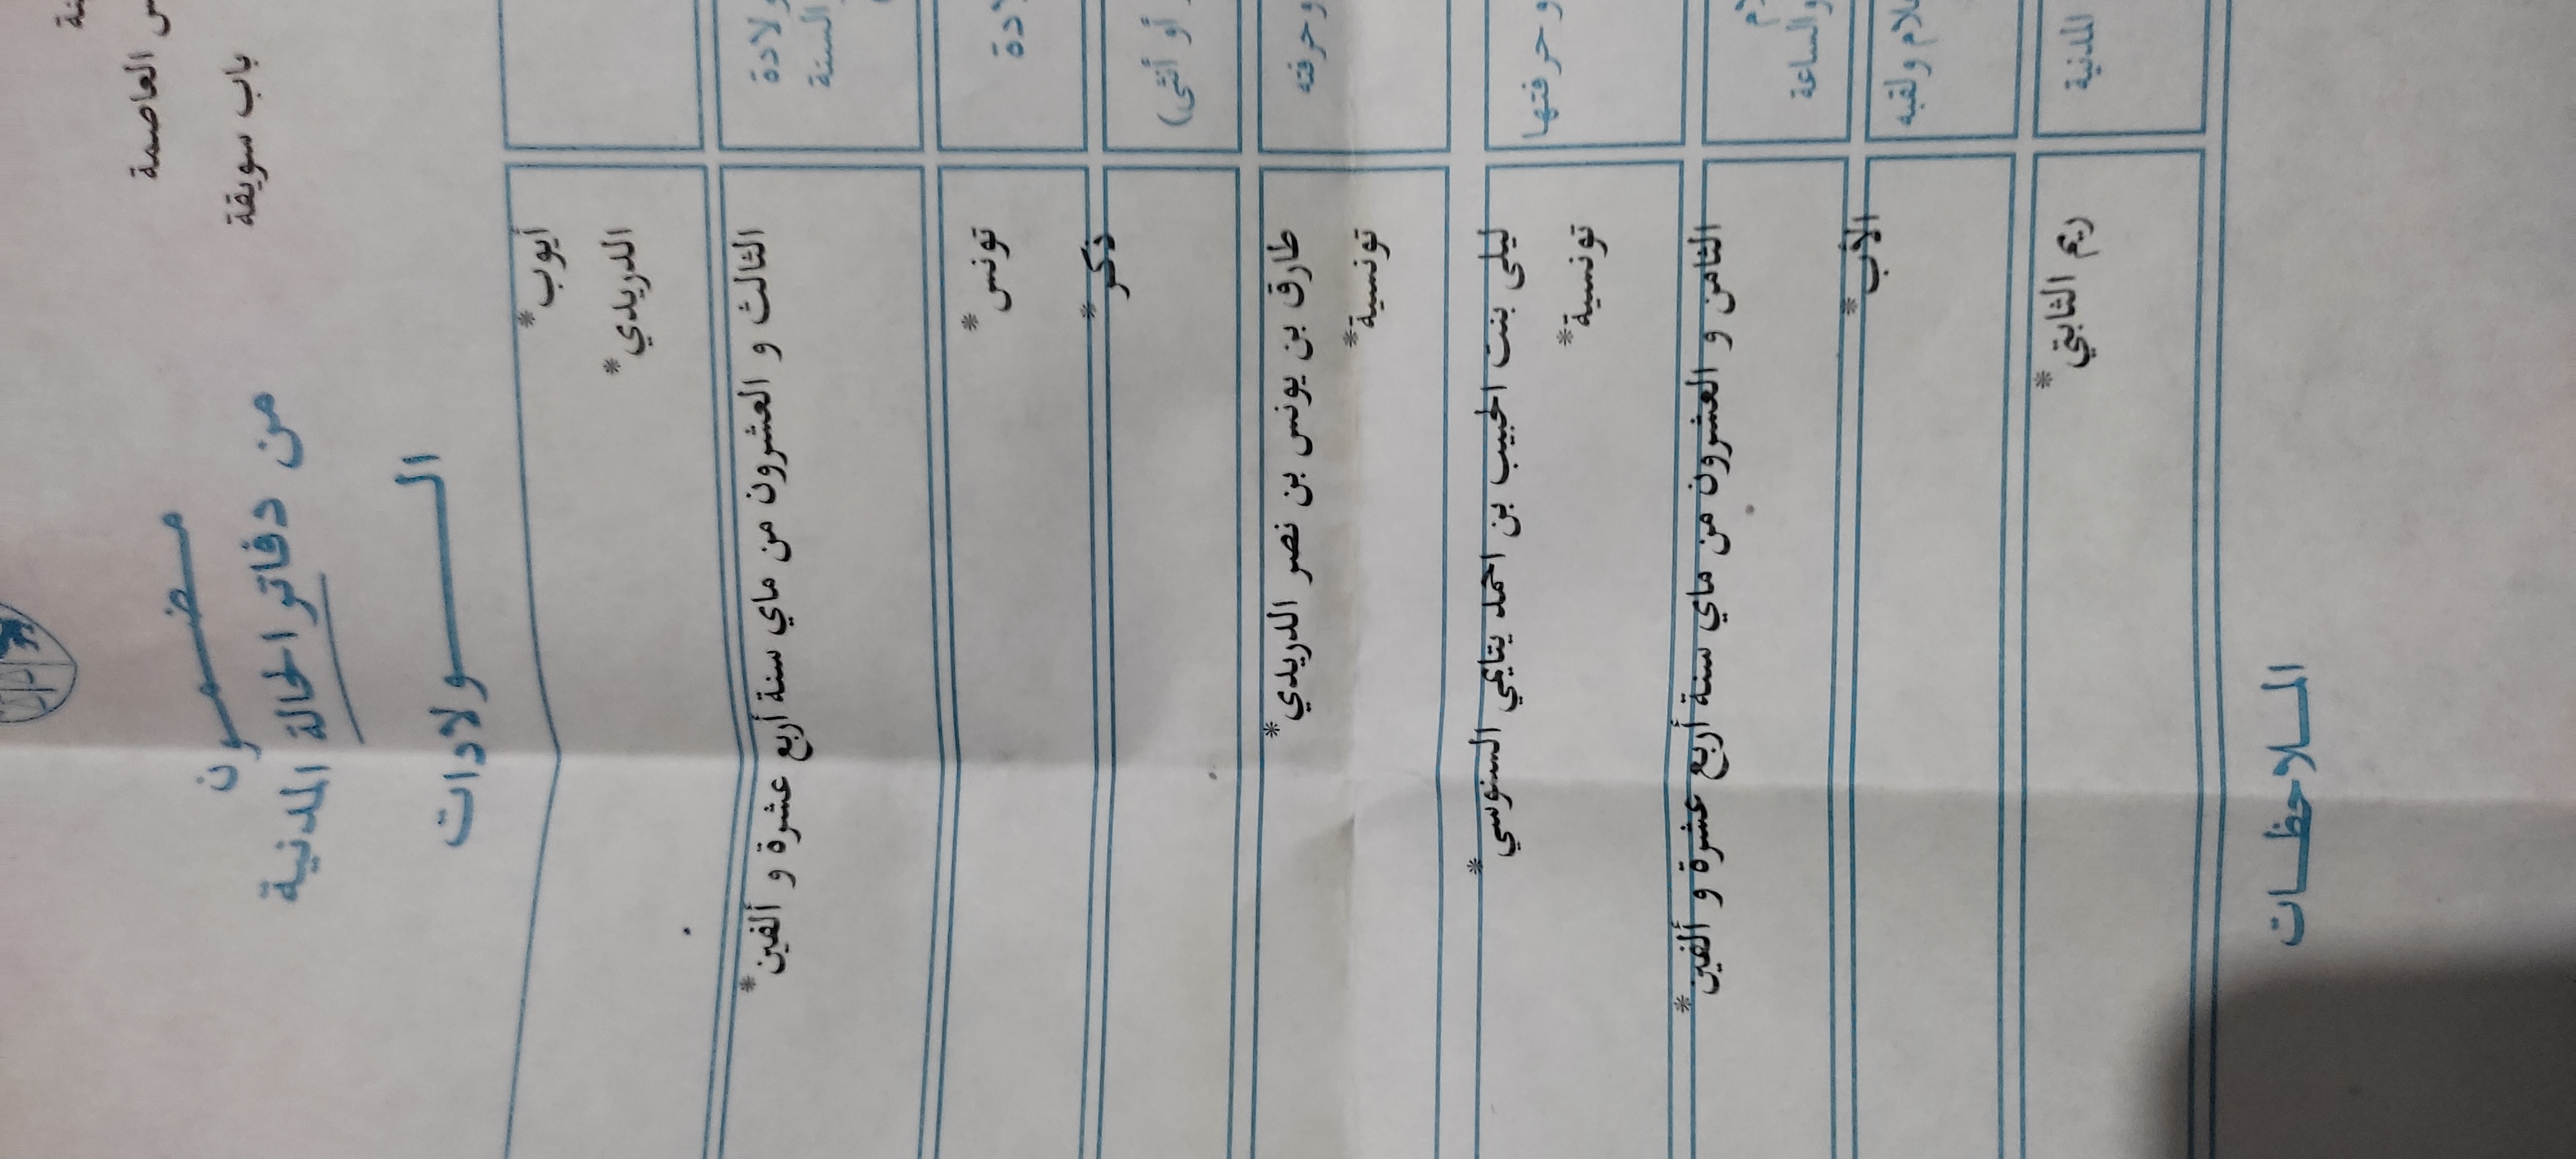 العاصمة
باب سويقة
مضمون
من دفاتر الحالة المدنية
الولادات
أيوب*
الدريدي*
ولادة
السنة
الثالث و العشرون من ماي سنة أربع عشرة و ألفين*
تونس*
أو أنثى)
ذكر*
وحرفته
طارق بن يونس بن نصر الدريدي*
تونسية*
وحرفتها
ليلى بنت الحبيب بن احمد يتايمي السنوسي*
تونسية*
والساعة
الثامن و العشرون من ماي سنة أربع عشرة و ألفين*
ولقبه
الأب*
المدنية
ريم الثابتي*
الملاحظات